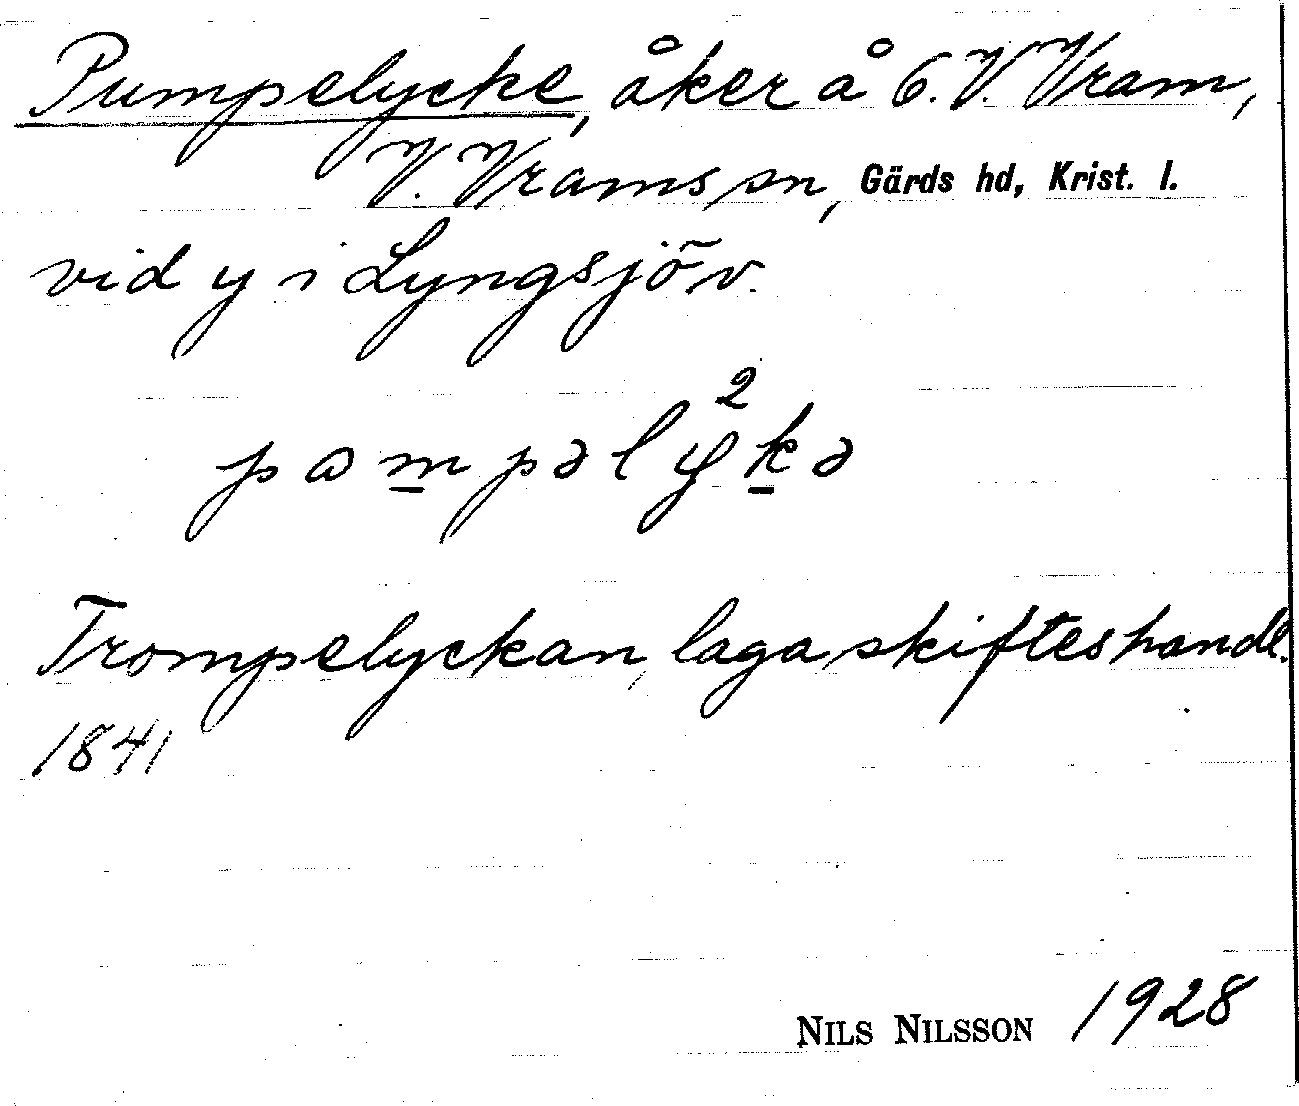 Pumpelycke, åker å 6. V. Vram,
V. Vrams sn, Gärds hd, Krist. l.
vid y i Lyngsjöv.
2
pampəlykə
Trompelyckan, laga skifteshandl.
1841
NILS NILSSON 1928